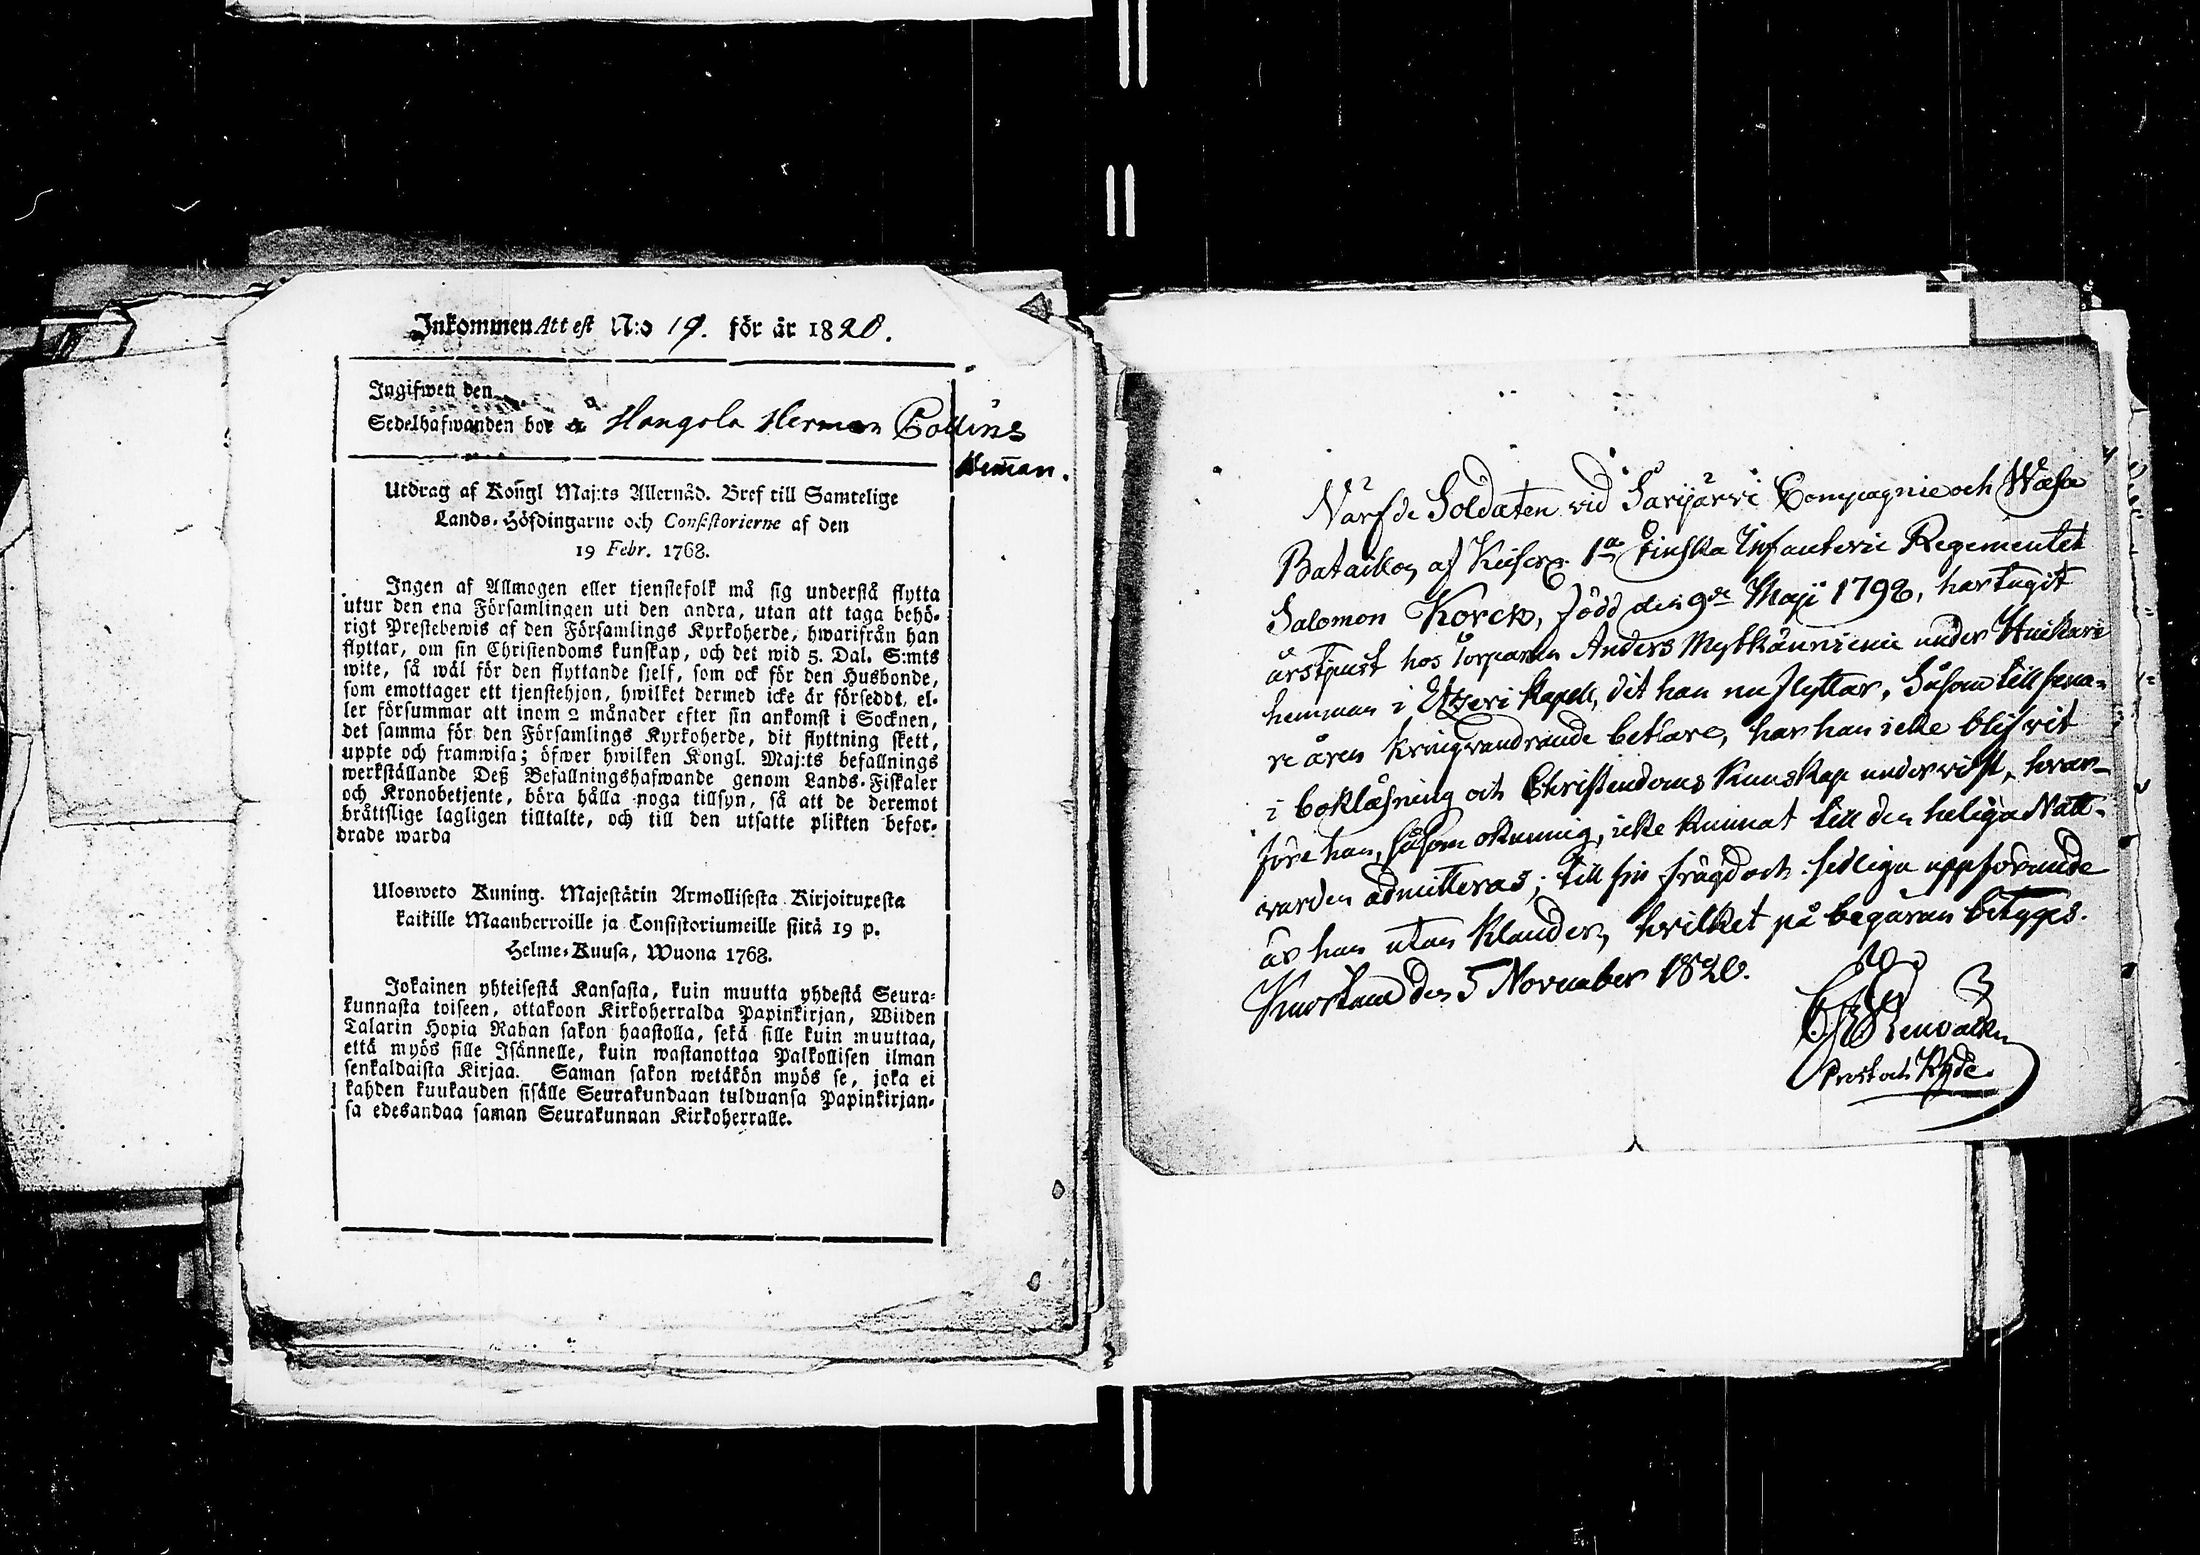 Inkommen Attest N:o 19. för år 1820.
Ingifwen den
Sedelhafwanden bor å Hangola Herman Collins
Heman.
Utdrag af Kongl Maj:ts Allernåd. Bref till Samtelige
Lands-Höfdingarne och Consistorierne af den
19 Febr. 1768.
Ingen af Allmogen eller tjenstefolk må sig understå flytta
utur den ena Församlingen uti den andra, utan att taga behö-
rigt Prestebewis af den Församlings Kyrkoherde, hwarifrån han
flyttar, om sin Christendoms kunskap, och det wid 5. Dal. S:mts
wite, så wäl för den flyttande sjelf, som ock för den Husbonde,
som emottager ett tjenstehjon, hwilket dermed icke är försedt, el-
ler försummar att inom 2 månader efter sin ankomst i Socknen,
det samma för den Församlings Kyrkoherde, dit flyttning skett,
uppte och framwisa; öfwer hwilken Kongl. Maj:ts befallnings
werkställande Deß Befallningshafwande genom Lands-Fiskaler
och Kronobetjente, böra hålla noga tillsyn, så att de deremot
bråttslige lagligen tilltalte, och till den utsatte plikten befor-
drade warda
Ulosweto Kuning. Majestätin Armollisesta Kirjoituxesta
kaikille Maanherroille ja Consistoriumeille siitä 19 p.
Helme-Kuusa, Wuona 1768.
Jokainen yhteisestä Kansasta, kuin muutta yhdestä Seura-
kunnasta toiseen, ottakoon Kirkoherralda Papinkirjan, Wiiden
Talarin Hopia Rahan sakon haastolla, sekä sille kuin muuttaa,
että myös sille Isännelle, kuin wastanottaa Palkollisen ilman
senkaldaista Kirjaa. Saman sakon wetäkön myös se, joka ei
kahden kuukauden sisälle Seurakundaan tulduansa Papinkirjan-
sa edesandaa saman Seurakunnan Kirkoherralle.
Värfde Soldaten vid Sarijärvi Compagnie och Wasa
Bataillon af Keiserl. 1a Finska Infanterie Regementet
Salomon Korck, född den 9de Maji 1798, har tagit
årstjenst hos Torparen Anders Mytkäinnieni under
hemman i Etzeri Kapell, dit han nu flyttar. Såsom till sena-
re åren kringvandrande betlare, har han icke blifvit
i boklæsning och Christendoms kunskap undervist, hvar-
före han, såsom okunnig, icke kunnat till den heliga Natt-
varden admitteras; till sin frägd och sedliga uppförande
är han utan klander, hvilket på begäran betyges.
Kuortane den 5 November 1820.
Prost och Khde